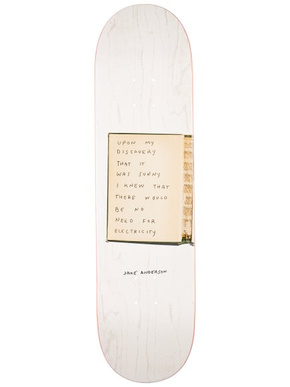 UPON MY
DISCOVERY
THAT IT
WAS SUNNY
I KNEW THAT
THERE WOULD
BE NO
NEED FOR
ELECTRICITY
JAKE ANDERSON